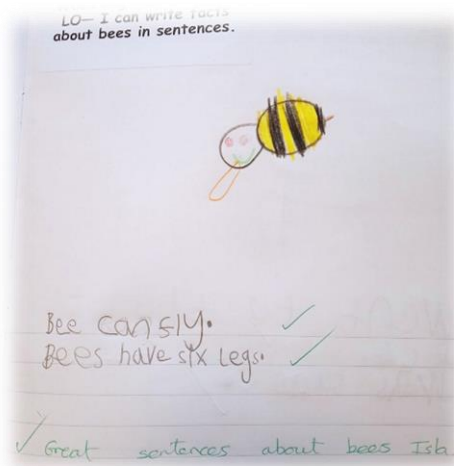 LO— I can write facts
about bees in sentences.
Bee can fly.
Bees have six Legs.
✓ Great sentences about bees Ish